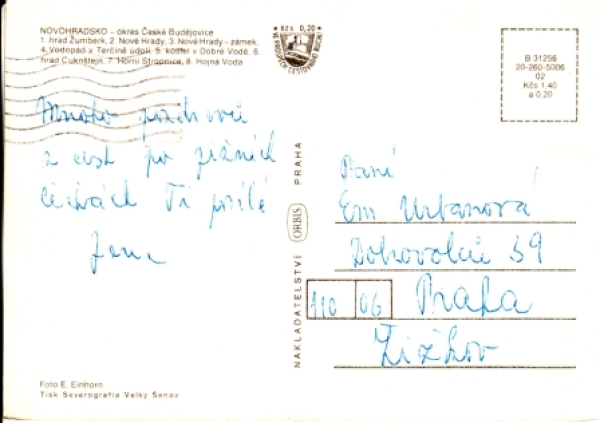 NOVOHRADSKO – okres České Budějovice
1. hrad Žumberk, 2. Nové Hrady, 3. Nové Hrady - zámek,
4. Vodopád v Terčině údolí, 5. kostel v Dobré Vodě, 6.
hrad Cuknštejn, 7. Horní Stropnice, 8. Hojná Voda
Kčs 0,20
VE PROSPĚCH CESTOVNÍHO RUCHU
B 31256
20-260-5006
02
Kčs 1,40
a 0,20
Mnoho pozdravů
z cest po jižních
Čechách Ti posílá
Jana
NAKLADATELSTVÍ ORBIS PRAHA
Paní
Em Urbanová
Bohovolců 39
110 06 Praha
Žižkov
Foto E. Einhorn
Tisk Severografia Velký Šenov